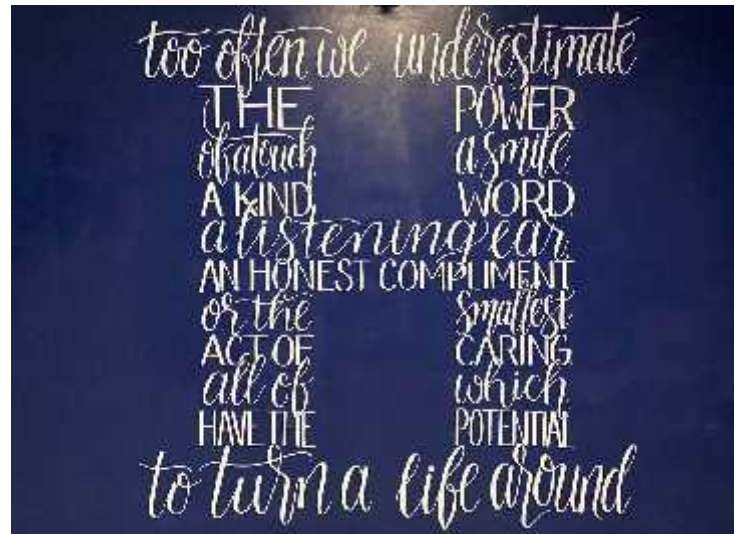 too often we underestimate
THE POWER
of a touch a smile
A KIND WORD
a listening ear
AN HONEST COMPLIMENT
or the smallest
ACT OF CARING
all of which
HAVE THE POTENTIAL
to turn a life around